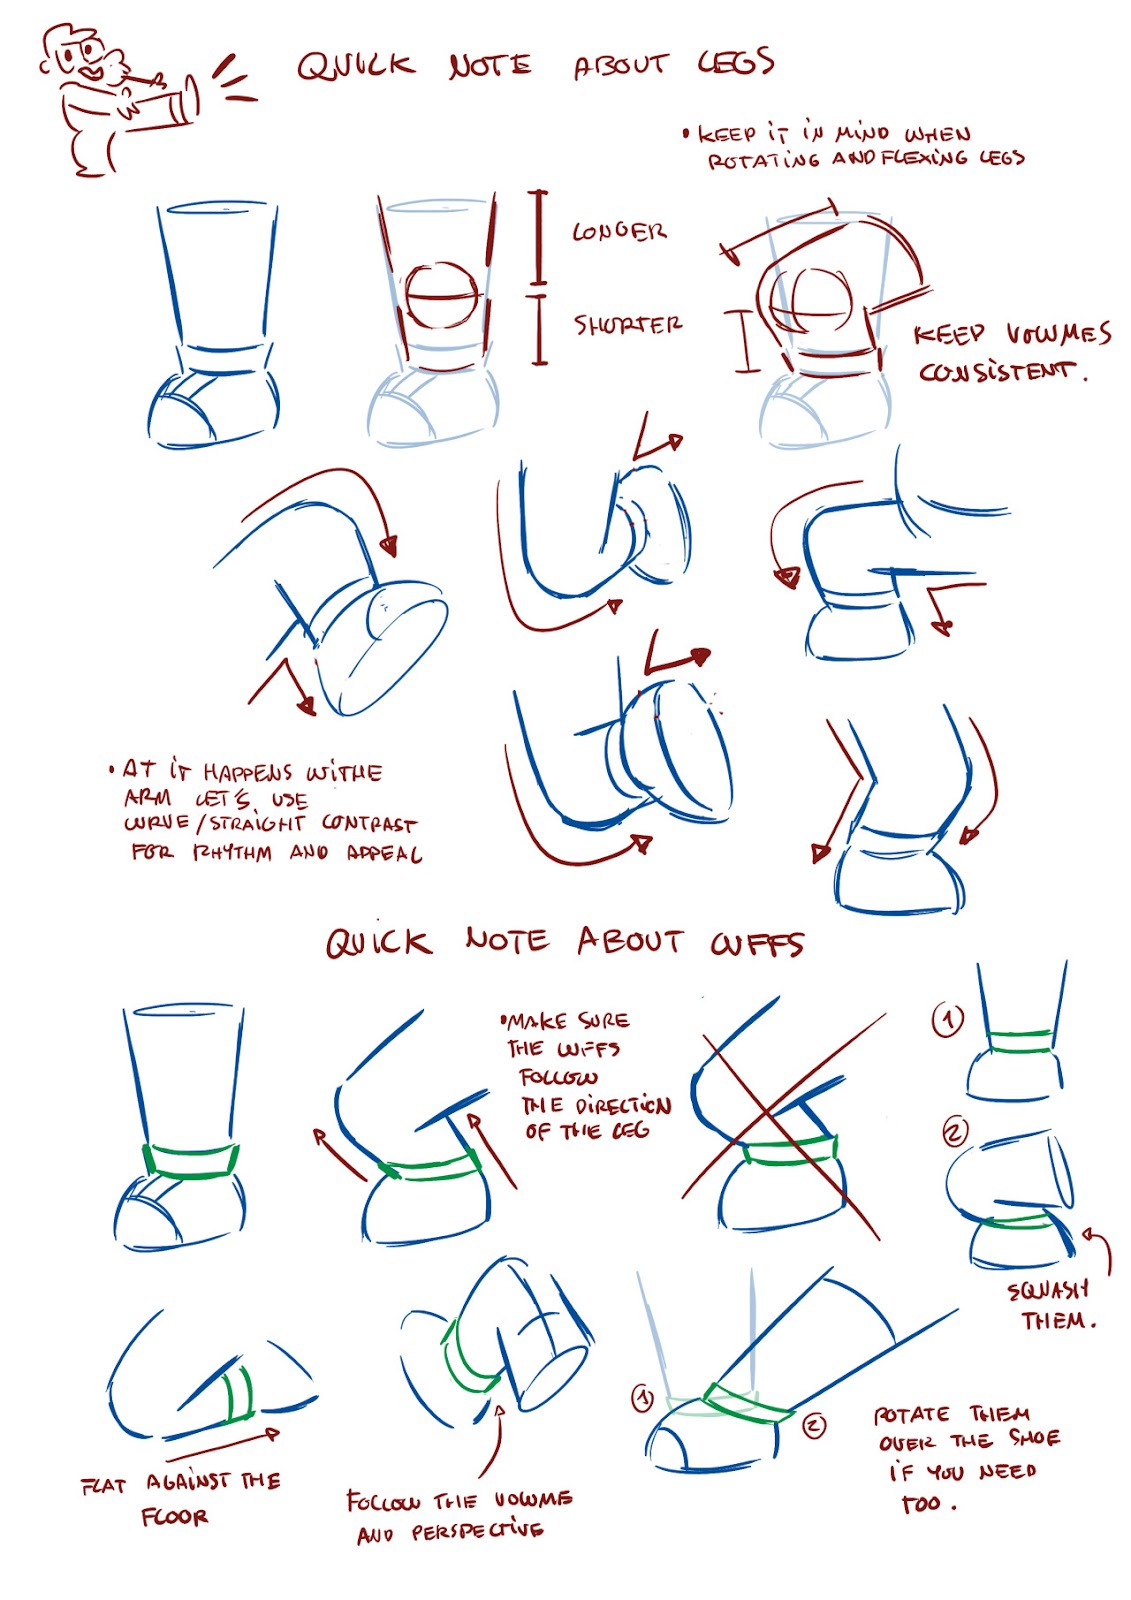 QUICK NOTE ABOUT LEGS
• KEEP IT IN MIND WHEN
ROTATING AND FLEXING LEGS
LONGER
SHORTER
KEEP VOLUMES
CONSISTENT.
• AT IT HAPPENS WITHE
ARM LET'S USE
CURVE/STRAIGHT CONTRAST
FOR RHYTHM AND APPEAL
QUICK NOTE ABOUT CUFFS
• MAKE SURE
THE CUFFS
FOLLOW
THE DIRECTION
OF THE LEG
1
2
SQUASH
THEM.
FLAT AGAINST THE
FLOOR
FOLLOW THE VOLUME
AND PERSPECTIVE
1
2
ROTATE THEM
OVER THE SHOE
IF YOU NEED
TOO.